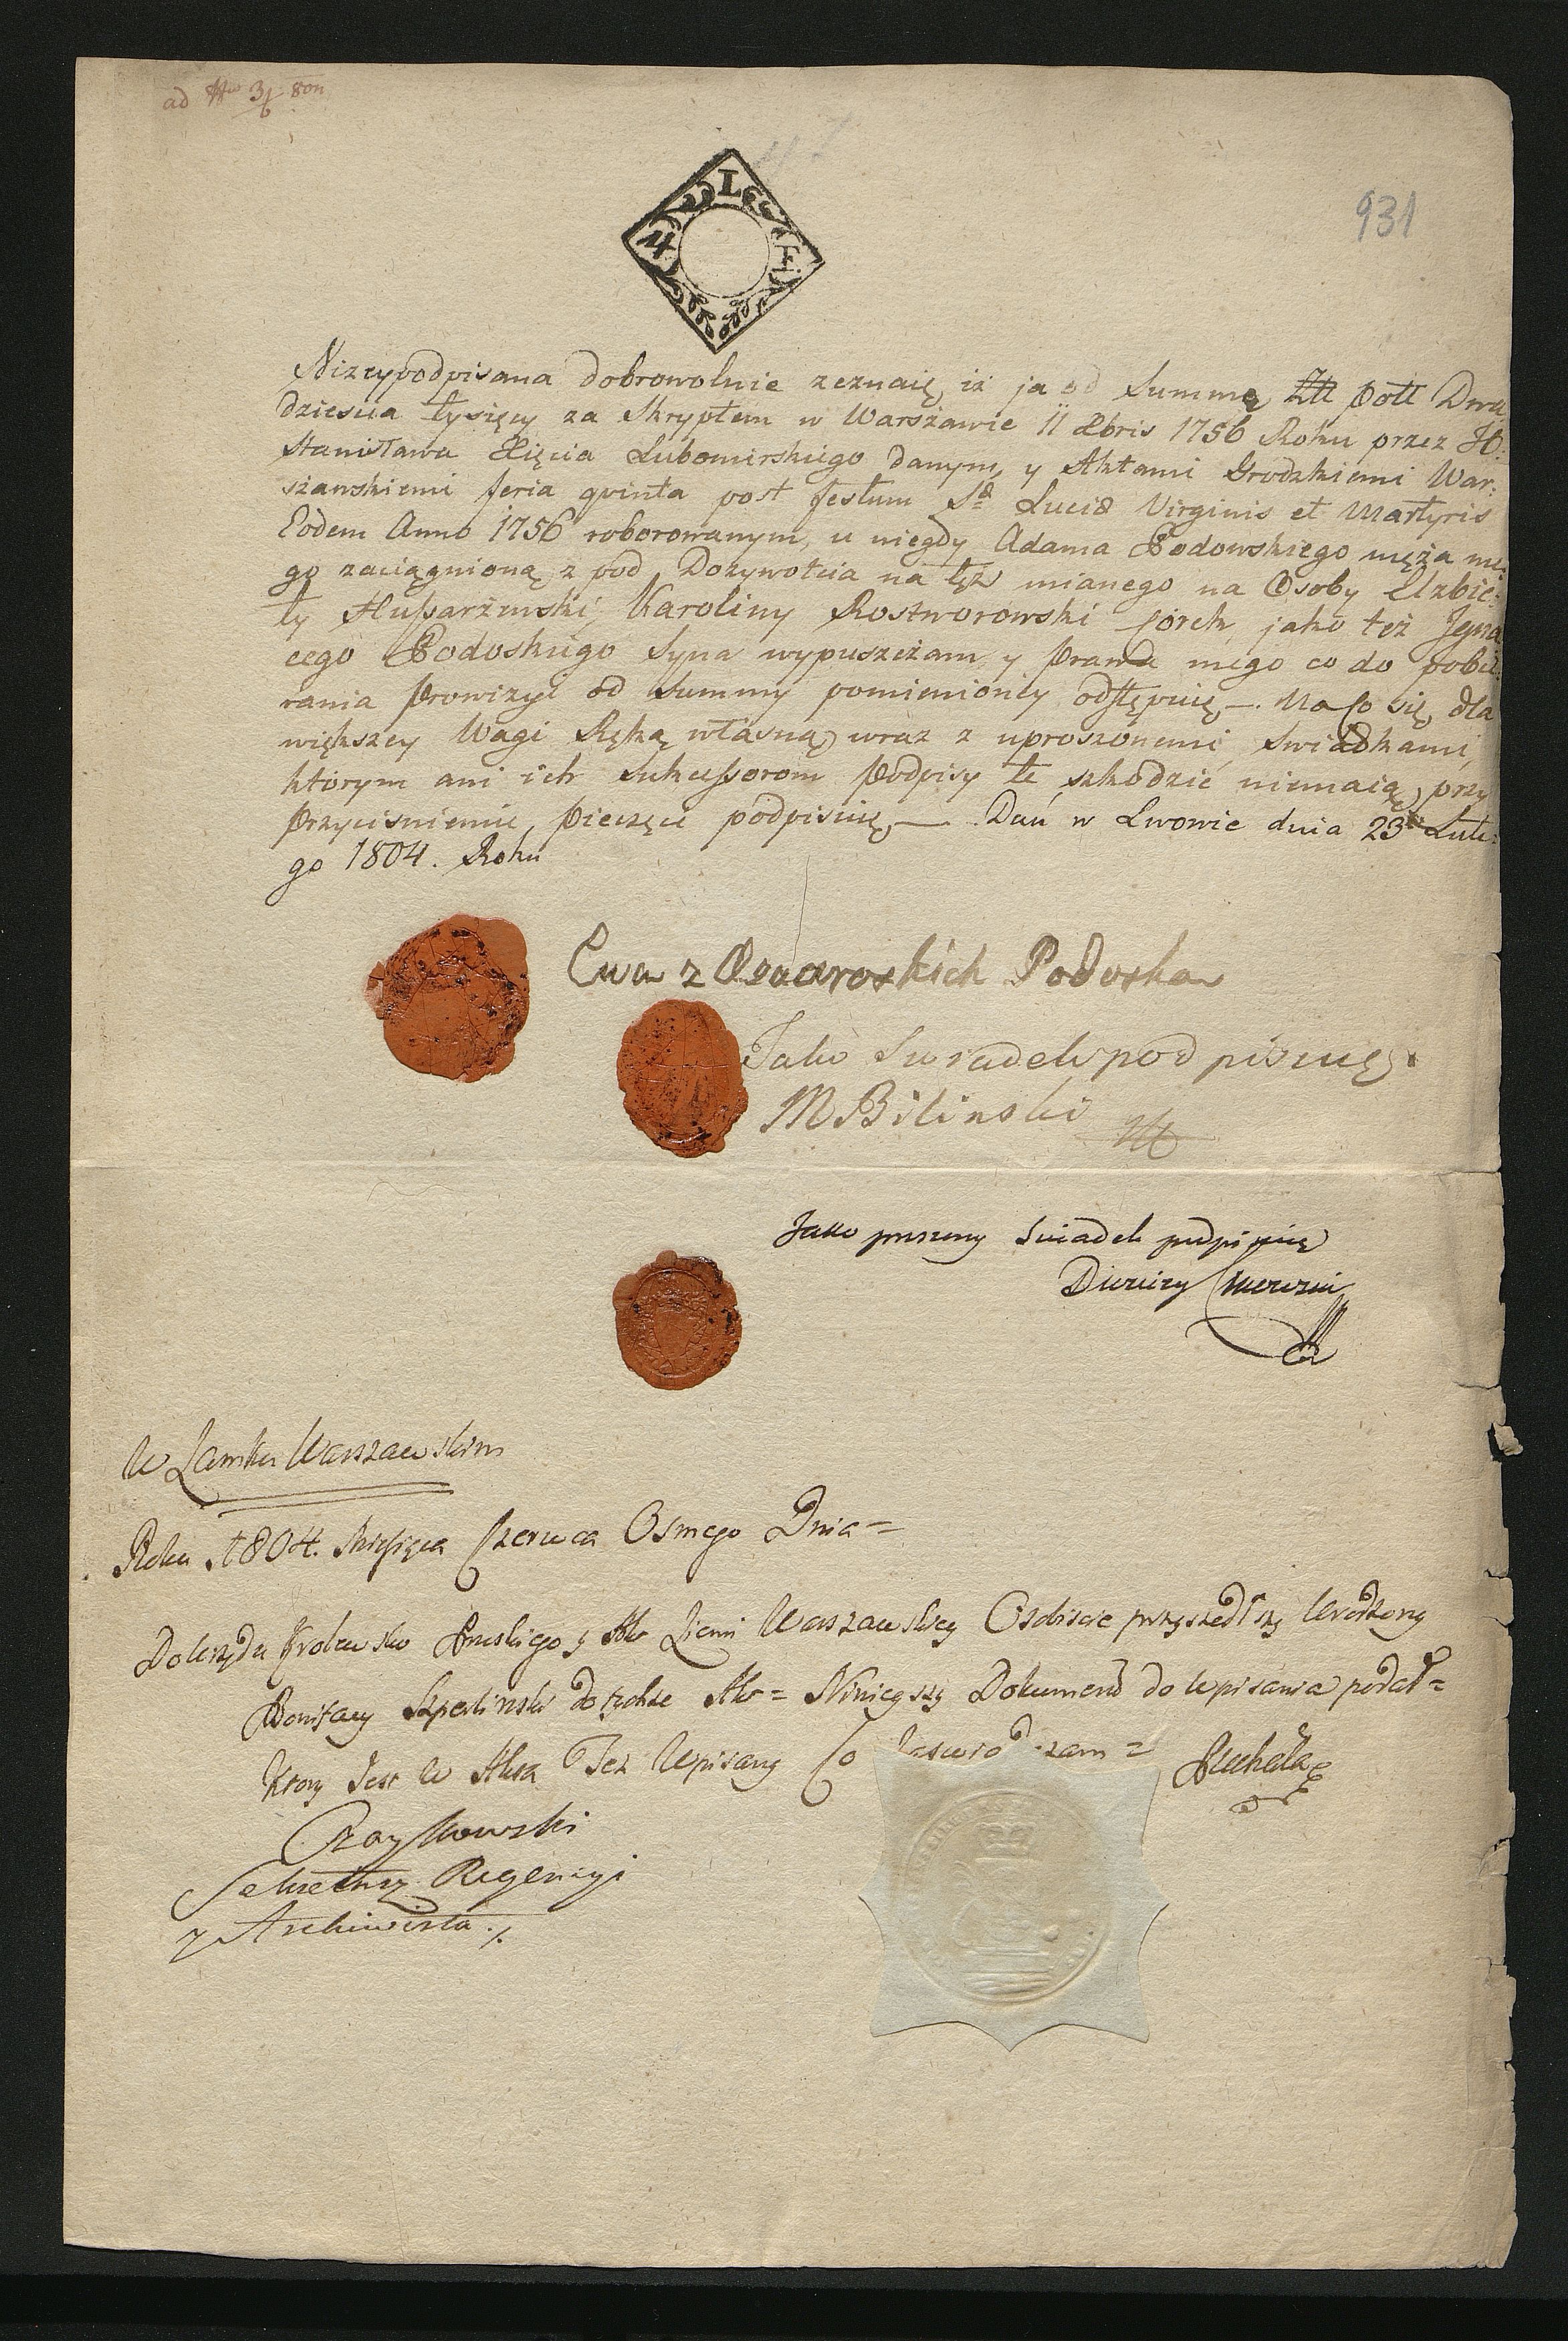 931
4 L
Nizeypodpisana dobrowolnie zeznaię, iż ja od Summę Złł poll Dwa
dziescia tysięcy za Skryptem w Warszawie 11 Xbris 1756 Roku przez
Stanisława Xięcia Lubomirskiego danym, y Aktami Grodzkiemi War:
szawskiemi feria qvinta post festum Luciæ Virginis et Martyris
Eodem Anno 1756 roborowanym, u niegdy Adama Podowskiego męża me:
go zaciągnioną, z pod Dozywotcia na tęż mianego na Osoby Elzbie:
ty Hussarzewski, Karoliny Rostworowski Córek jako też Jgna
cego Podoskiego Syna wypuszczam y Prawa mego co do pobie:
rania Prowizyi od Summy pomienioney odstępuię —. Na Co się dla
większey Wagi Ręką własną wraz z uproszonemi Swiadkami,
którym ani ich Sukcessorom Podpisy te szkodzić niemaią, przy
Przyciśnieniu Pieczęci podpisuię — Dań w Lwowie dnia 23 Lute:
go 1804. Roku
Ewa z Podoska
Jako Swiadek podpisuię
M Bilinski
Jako proszony Swiadek podpisuię
W Zamku Warszawskim
Roku 1804. Miesiąca Czerwca Osmego Dnia =
Do Urzędu Pruskiego y Akt Ziemi Warszawskiey Osobiscie przyszedłszy Urodzony
Bonifacy Akt = Ninieyszy Dokument do Wpisania podał =
Ktory Jest w Akta Też Wpisany Co zam =
Sekretarz Regencyi
y Archiwista